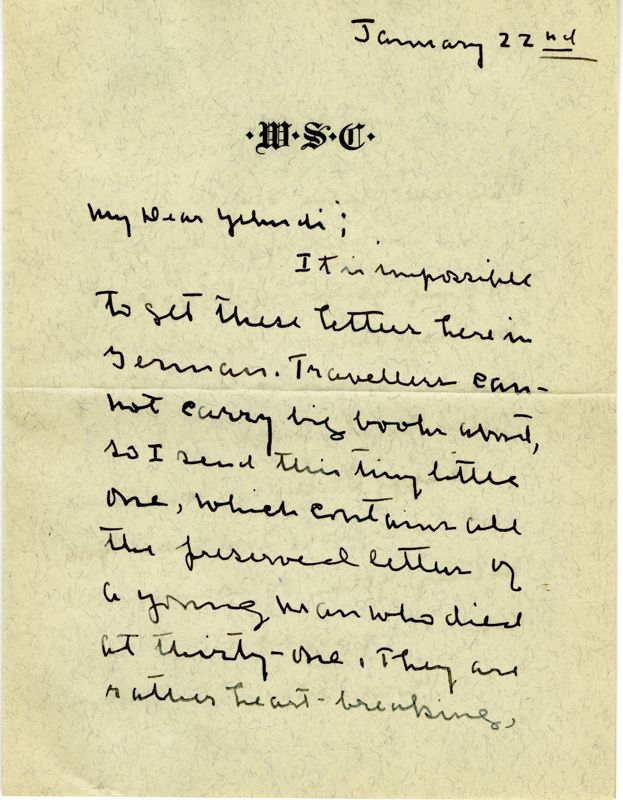 January 22nd
·W·S·C·
My Dear Yehudi;
It is impossible
to get these letters here in
German. Travellers can-
not carry big books about,
so I send this tiny little
one, which contains all
the preserved letters of
a young man who died
at thirty-one. They are
rather heart-breaking,